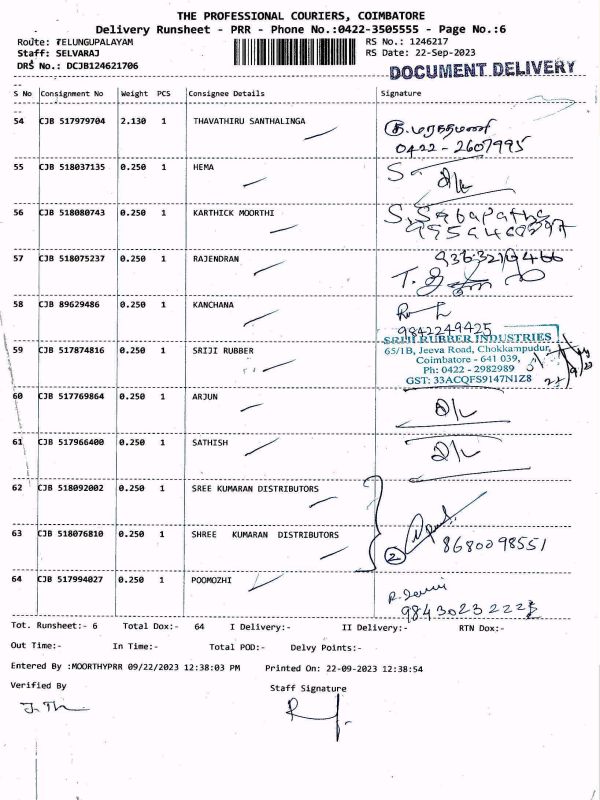 THE PROFESSIONAL COURIERS, COIMBATORE
Delivery Runsheet - PRR - Phone No.:0422-3505555 - Page No.:6
Route: TELUNGUPALAYAM RS No.: 1246217
Staff: SELVARAJ RS Date: 22-Sep-2023
DRS No.: DCJB124621706
DOCUMENT DELIVERY
S No Consignment No Weight PCS Consignee Details Signature
54 CJB 517979704 2.130 1 THAVATHIRU SANTHALINGA
0422-2607995
55 CJB 518037135 0.250 1 HEMA
56 CJB 518080743 0.250 1 KARTHICK MOORTHI
57 CJB 518075237 0.250 1 RAJENDRAN
58 CJB 89629486 0.250 1 KANCHANA
9842249425
59 CJB 517874816 0.250 1 SRIJI RUBBER
SRIJI RUBBER INDUSTRIES
65/1B, Jeeva Road, Chokkampudur,
Coimbatore - 641 039,
Ph: 0422 - 2982989
GST: 33ACQFS9147N1Z8
60 CJB 517769864 0.250 1 ARJUN
61 CJB 517966400 0.250 1 SATHISH
62 CJB 518092002 0.250 1 SREE KUMARAN DISTRIBUTORS
63 CJB 518076810 0.250 1 SHREE KUMARAN DISTRIBUTORS
2 8680098551
64 CJB 517994027 0.250 1 POOMOZHI
Tot. Runsheet:- 6 Total Dox:- 64 I Delivery:- II Delivery:- RTN Dox:-
Out Time:- In Time:- Total POD:- Delvy Points:-
Entered By :MOORTHYPRR 09/22/2023 12:38:03 PM Printed On: 22-09-2023 12:38:54
Verified By Staff Signature